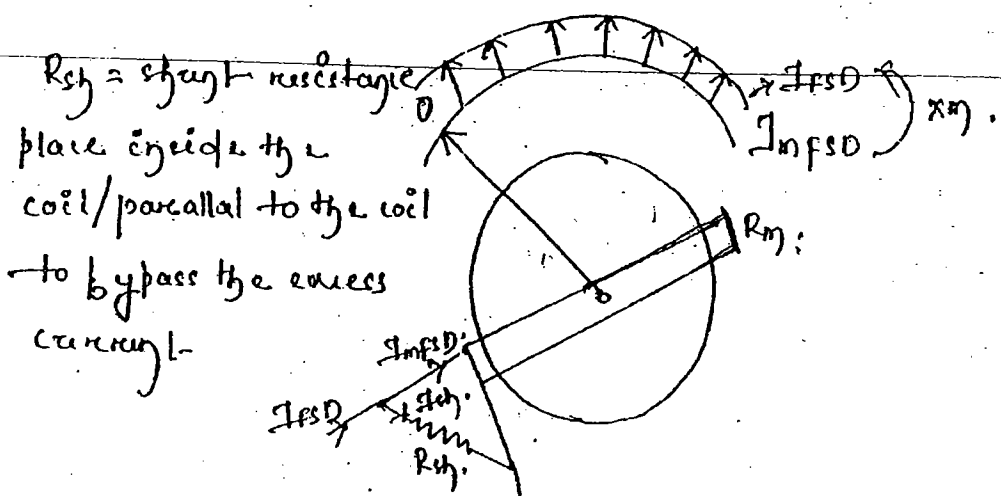 Rsh = shunt resistance
place inside the
coil/parallal to the coil
to bypass the excess
current
0
IFSD
ImFSD
xm.
Rm:
ImFSD.
IFSD
Ish.
Rsh.